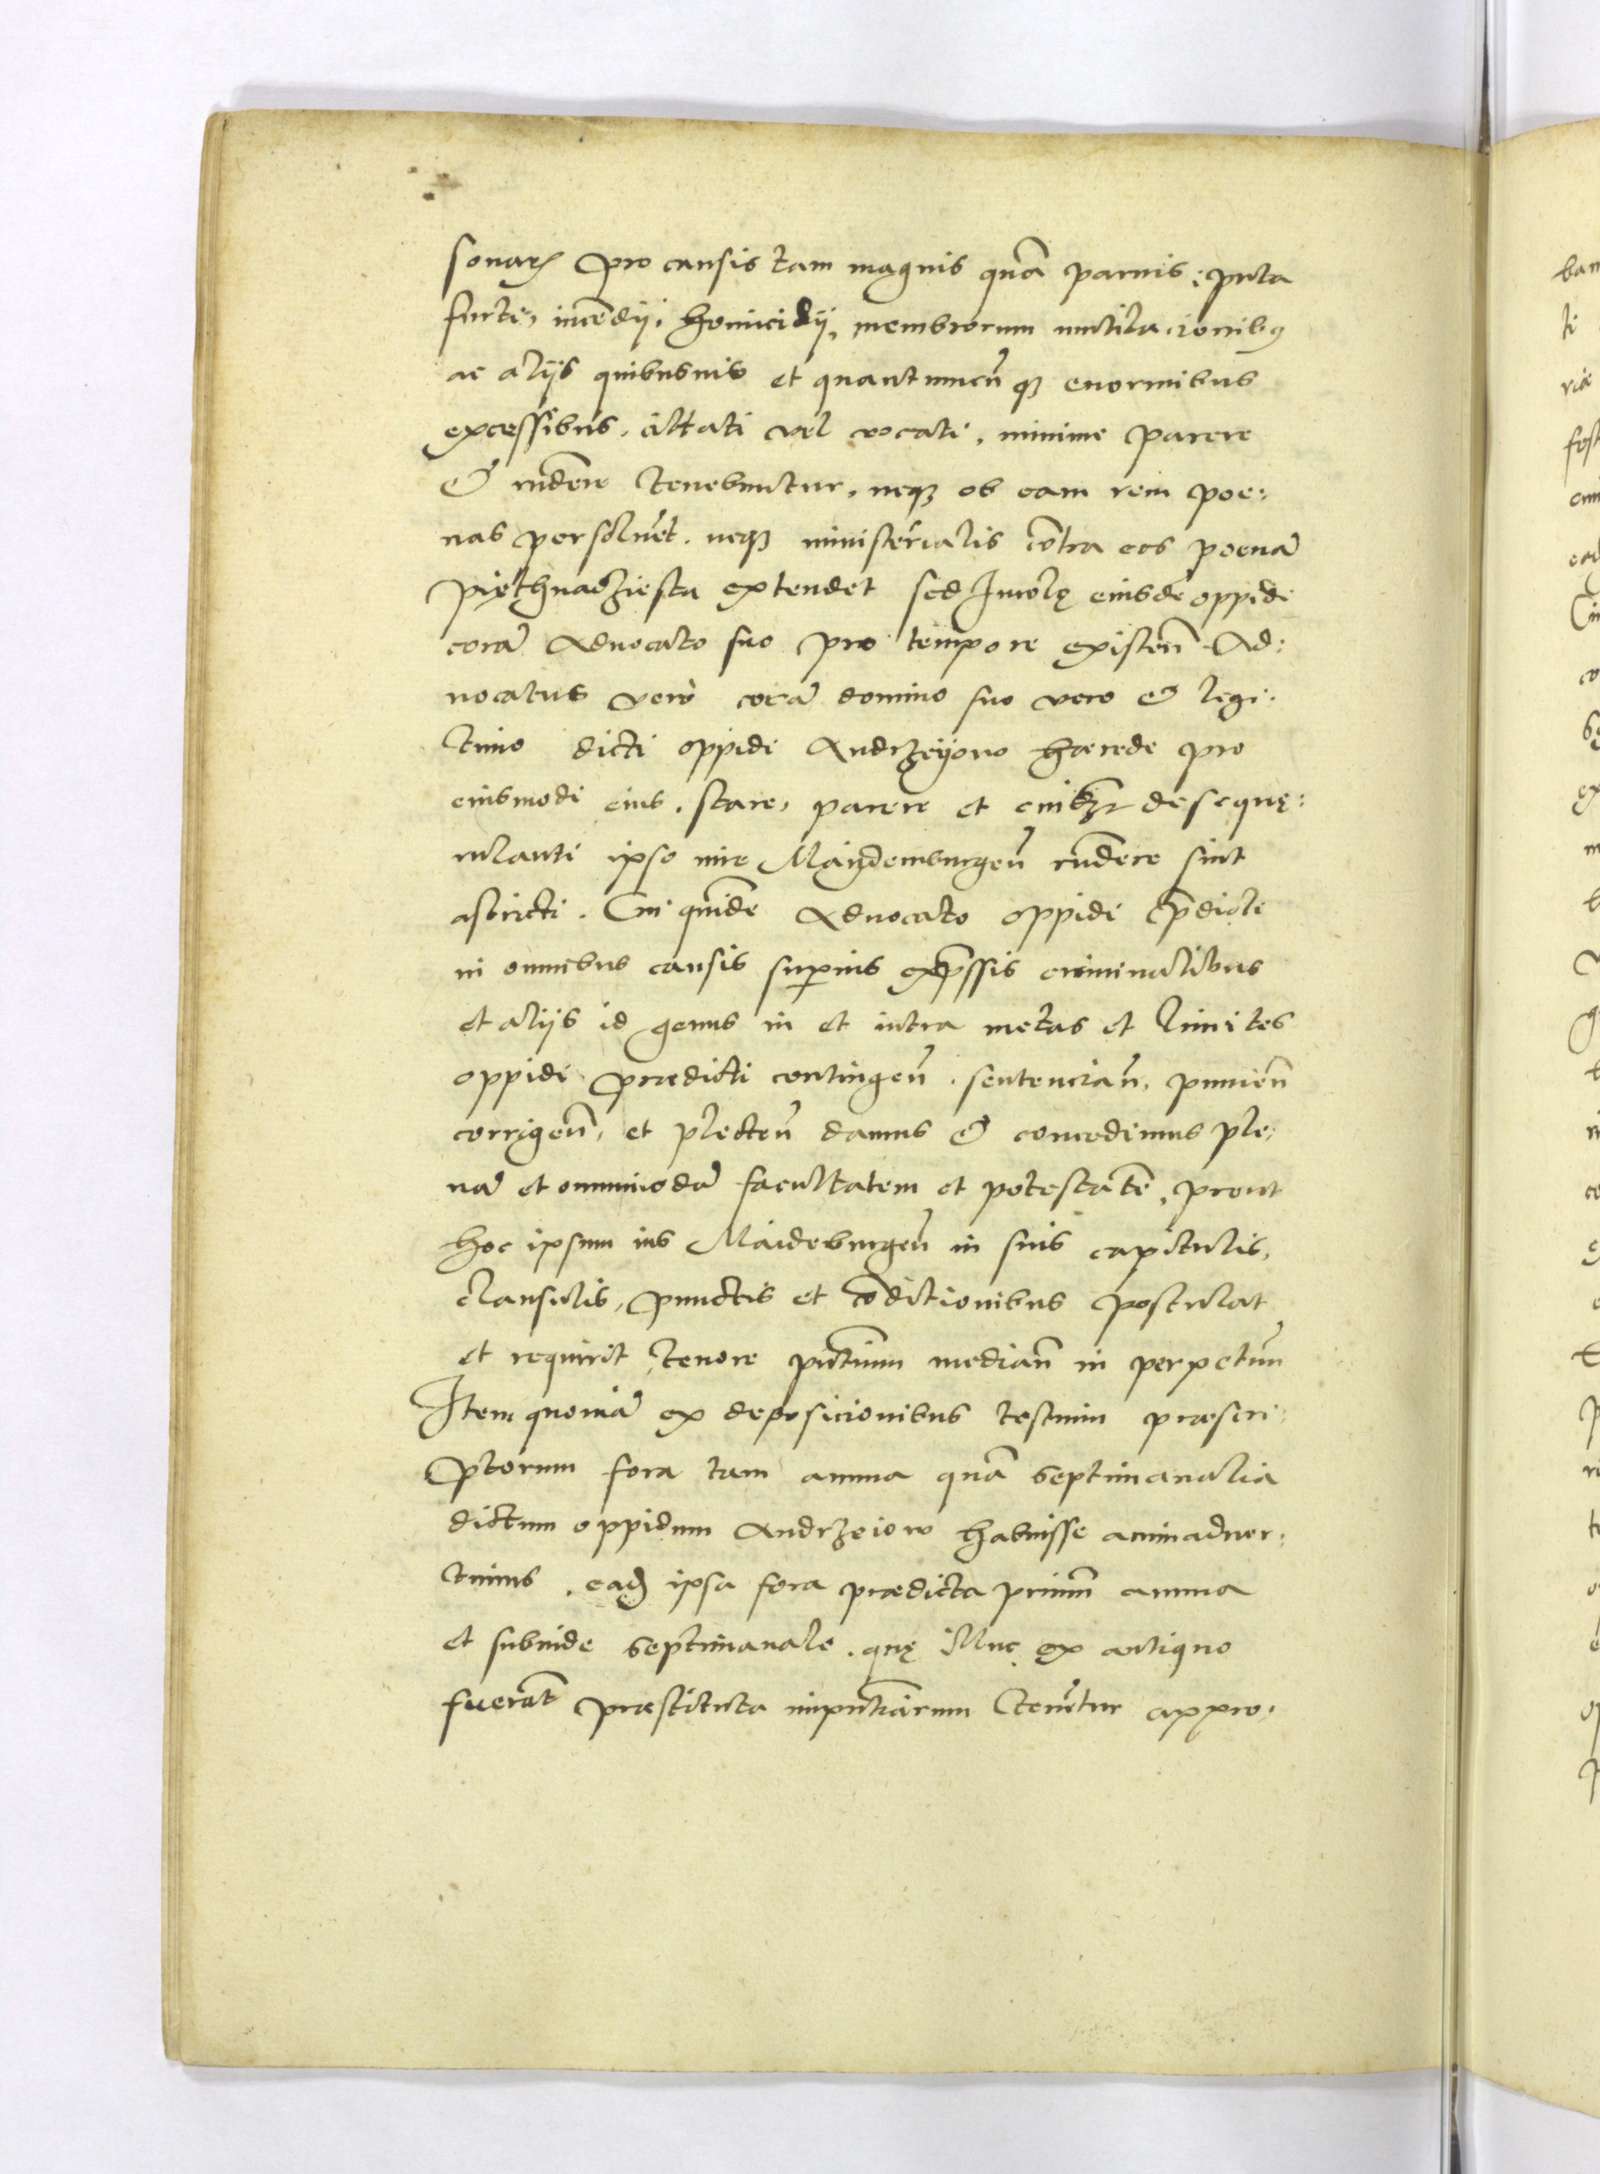 sonaꝝ pro causis tam magnis quā paruis: puta
furti, incēdij, homicidij, membrorum mutilacionibꝫ
ac alijs quibusuis et quantumcūqꝫ enormibus
excessibus, citati vel vocati, minime parere
& rñdere tenebuntur, neqꝫ ob eam rem poe:
nas persoluēt, neqꝫ ministerialis cōtra eos poenā
pięthnadziesta extendet sed Incolę eiusdē oppidi
corā Aduocato suo pro tempore existeñ Ad:
uocatus verò corā domino suo vero & legi:
timo dicti oppidi Andrzeyow hærede pro
eiusmodi eius, stare, parere et cuilibet de se quę:
rulanti ipso iure Maydemburgeñ rñdere sint
astricti. Cui quidē Aduocato oppidi p̄dicti
in omnibus causis superius exp̄ssis criminalibus
et alijs id genus in et intra metas et limites
oppidi prædicti contingeñ. sentenciañ, punieñ
corrigeñ, et plecteñ damus & concedimus ple:
nā et omnimodā facultatem et potestatē, prout
hoc ipsum ius Maideburgeñ in suis capitulis,
clausulis, punctis et cōditionibus postulat
et requirit tenore pñtium mediañ in perpetuū
Item quoniā ex deposicionibus testium præscri:
ptorum fora tam annua quā septimanalia
dictum oppidum Andrzeiow habuisse animaduer:
timus, eadē ipsa fora prædicta primū annua
et subinde septimanale, quę illuc ex antiquo
fuerāt præstituta inpñtiarum tenētur appro: